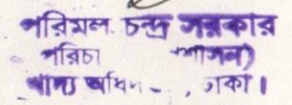 পরিমল চন্দ্র সরকার
পরিচা শাসন)
খাদ্য অধি , ঢাকা।